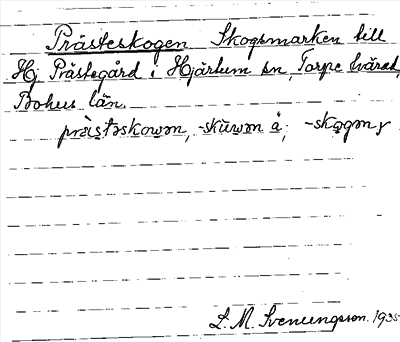 Prästeskogen Skogsmarken till
Hj Prästegård i Hjärtum sn, Torpe härad,
Bohus län.
prästəskowən, -skūwən å; -skogən y
L. M. Svenungsson. 1935